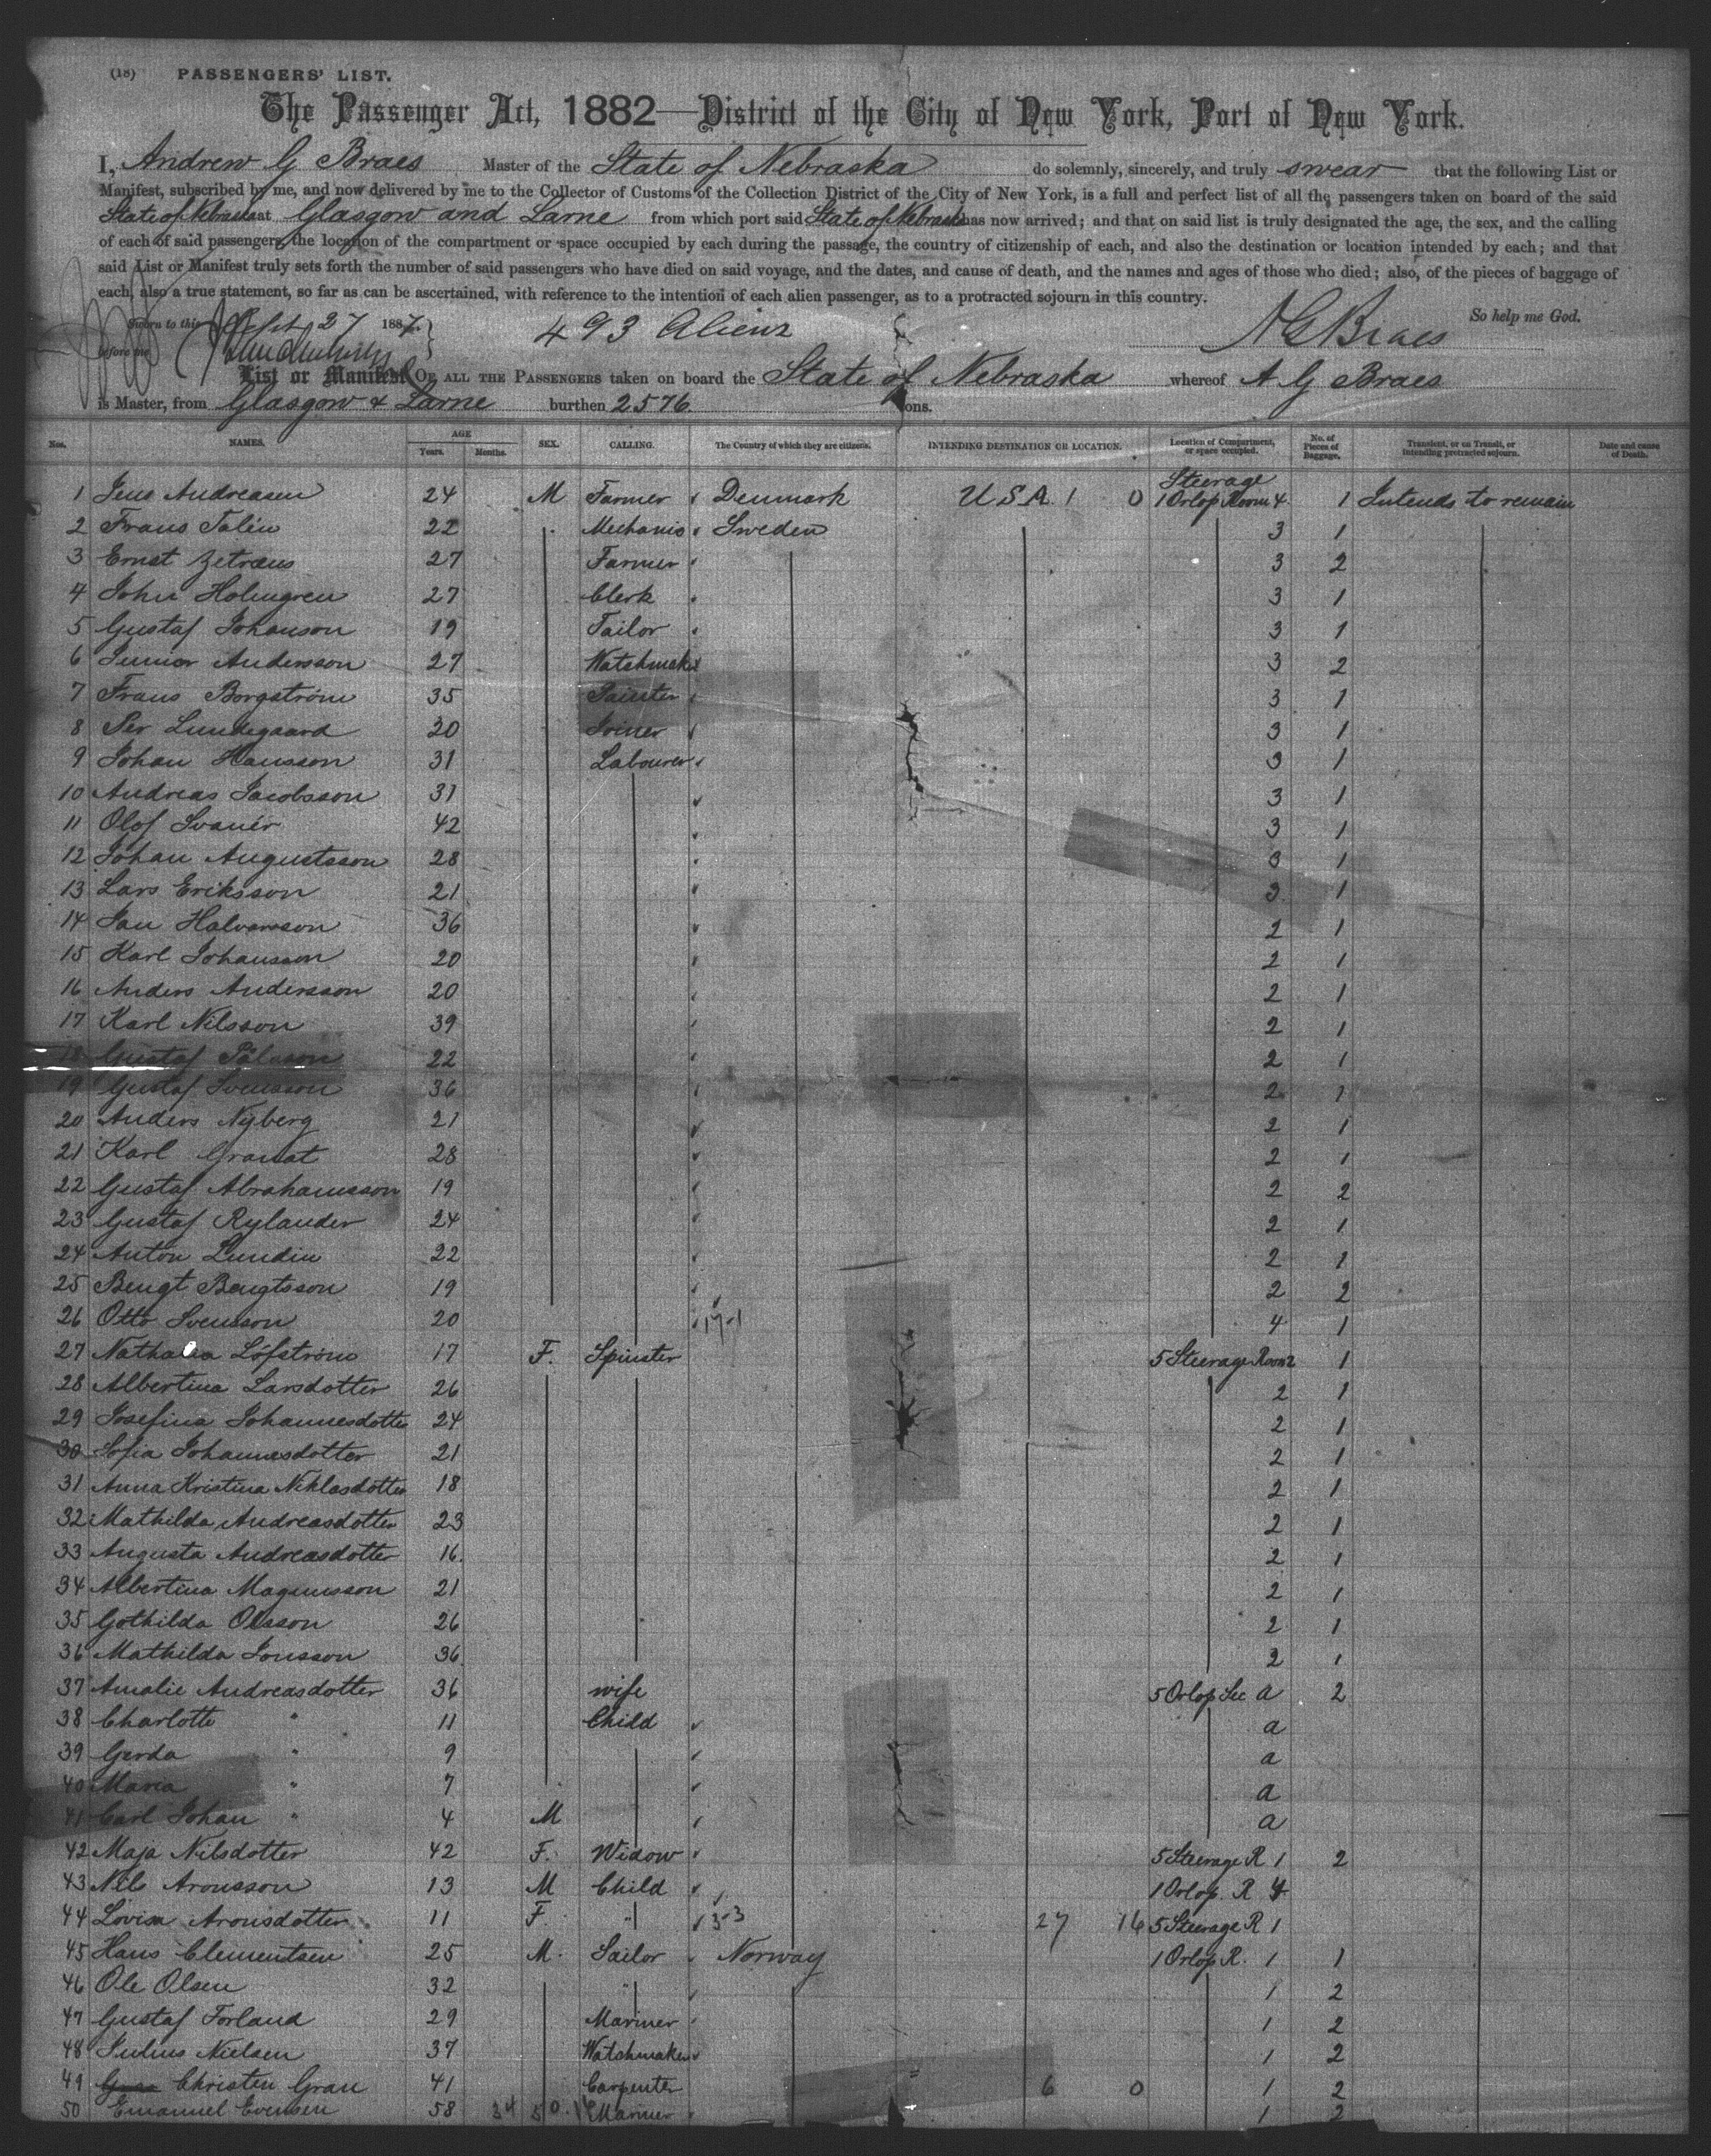 (18) PASSENGERS' LIST.
The Passenger Act, 1882—District of the City of New York, Port of New York.
I, Andrew G Braes Master of the State of Nebraska do solemnly, sincerely, and truly swear that the following List or
Manifest, subscribed by me, and now delivered by me to the Collector of Customs of the Collection District of the City of New York, is a full and perfect list of all the passengers taken on board of the said
State of Nebraska at Glasgow and Larne from which port said State of Nebraska has now arrived; and that on said list is truly designated the age, the sex, and the calling
of each of said passengers, the location of the compartment or space occupied by each during the passage, the country of citizenship of each, and also the destination or location intended by each; and that
said List or Manifest truly sets forth the number of said passengers who have died on said voyage, and the dates, and cause of death, and the names and ages of those who died; also, of the pieces of baggage of
each, also a true statement, so far as can be ascertained, with reference to the intention of each alien passenger, as to a protracted sojourn in this country.
So help me God.
Sworn to this Sept 27 1887
before me
493 Aliens
A G Braes
List or Manifest OF ALL THE PASSENGERS taken on board the State of Nebraska whereof A G Braes
is Master, from Glasgow & Larne burthen 2576 tons.
Nos. NAMES. AGE Years. Months. SEX. CALLING. The Country of which they are citizens. INTENDING DESTINATION OR LOCATION. Location of Compartment, or space occupied. No. of Pieces of Baggage. Transient, or on Transit, or intending protracted sojourn. Date and cause of Death.
1 Jens Andreasen 24 M Farmer Denmark U S A 1 0 Steerage 1 Orlop Room 4 1 Intends to remain
2 Frans Talén 22 Mechanic Sweden 3 1
3 Ernst Zetraeus 27 Farmer 3 2
4 John Holmgren 27 Clerk 3 1
5 Gustaf Johanson 19 Tailor 3 1
6 Andersson 27 Watchmaker 3 2
7 Frans Borgström 35 Painter 3 1
8 Per Lundegaard 20 Joiner 3 1
9 Johan Hansson 31 Labourer 3 1
10 Andreas Jacobsson 31 3 1
11 Olof Svanér 42 3 1
12 Johan Augustsson 28 3 1
13 Lars Eriksson 21 3 1
14 Jan Halvorsson 36 2 1
15 Karl Johansson 20 2 1
16 Anders Andersson 20 2 1
17 Karl Nilsson 39 2 1
18 Gustaf Pålsson 22 2 1
19 Gustaf Svensson 36 2 1
20 Anders Nyberg 21 2 1
21 Karl Granat 28 2 1
22 Gustaf Abrahamsson 19 2 2
23 Gustaf Rylander 24 2 1
24 Anton Lundin 22 2 1
25 Bengt Bengtsson 19 2 2
26 Otto Svensson 20 17-1 4 1
27 Löfström 17 F. Spinster 5 Steerage Room 2 1
28 Albertina Larsdotter 26 2 1
29 Josefina Johannesdotter 24 2 1
30 Sofia Johannesdotter 21 2 1
31 Anna Kristina Niklasdotter 18 2 1
32 Mathilda Andreasdotter 23 2 1
33 Augusta Andreasdotter 16 2 1
34 Albertina Magnusson 21 2 1
35 Gothilda Olsson 26 2 1
36 Mathilda Jonsson 36 2 1
37 Amalie Andreasdotter 36 wife 5 Orlop Sec a 2
38 Charlotte " 11 Child a
39 Gerda " 9 a
40 Maria " 7 a
41 Carl Johan " 4 M a
42 Maja Nilsdotter 42 F. Widow 5 Steerage R 1 2
43 Nils Aronsson 13 M Child 1 Orlop R 4
44 Lovisa Aronsdotter 11 F " 3-3 27 16 5 Steerage R 1
45 Hans Clementsen 25 M. Sailor Norway 1 Orlop R. 1 1
46 Ole Olsen 32 " 1 2
47 Gustaf Forland 29 Mariner 1 2
48 Julius Nielsen 37 Watchmaker 1 2
49 Christen Gran 41 Carpenter 6 0 1 2
50 Emanuel Evensen 58 34 Mariner 1 2